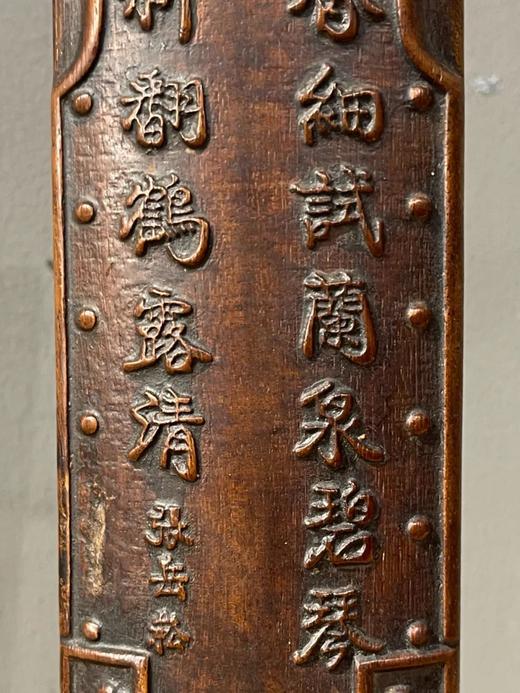 細試蘭泉碧琴
翻鶴露清
張岳崧